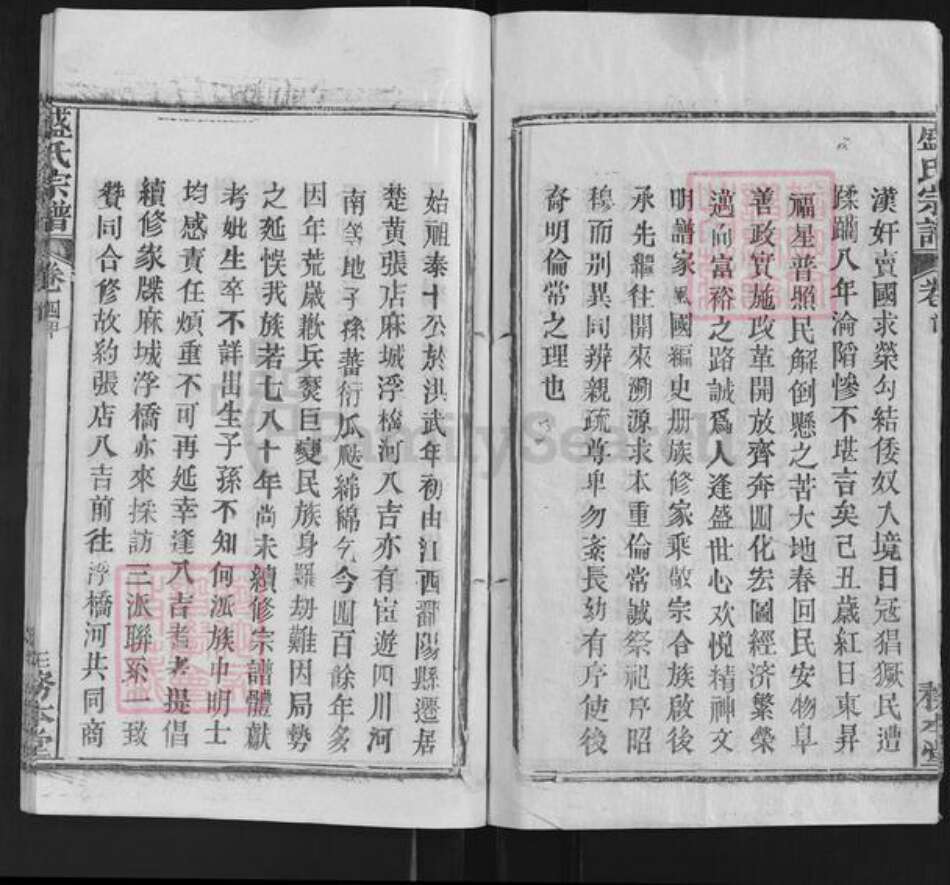 盛氏宗譜
卷首
漢奸賣國求榮勾結倭奴入境日冠猖獗民遭
蹂躪八年淪陷慘不堪言矣己丑歲紅日東昇
福星普照民解倒懸之苦大地春回民安物阜
善政實施改革開放齊奔四化宏圖經济繁榮
邁向富裕之路誠爲人逢盛世心欢悦精神文
明譜家風國編史册族修家乘敬宗合族啟後
承先繼往開來溯源求本重倫常誠祭祀序昭
穆而别異同辨親疏尊卑勿紊長幼有序使後
裔明倫常之理也
始祖泰十公於洪武年初由江西鄱陽縣遷居
楚黄張店麻城浮橋河八吉亦有宦遊四川河
南等地子孫蕃衍瓜瓞綿綿乞今四百餘年多
因年荒歲歉兵燹巨變民族身羅劫難因局勢
之延悞我族若七八十年尚未續修宗譜體獻
考妣生卒不詳出生子孫不知何派族中明士
均感責任煩重不可再延幸逢八吉耆老提倡
續修家牒麻城浮橋亦來採訪三派聯系一致
贊同合修故約張店八吉前往浮橋河共同商
盛氏宗譜
卷首
FamilySearch